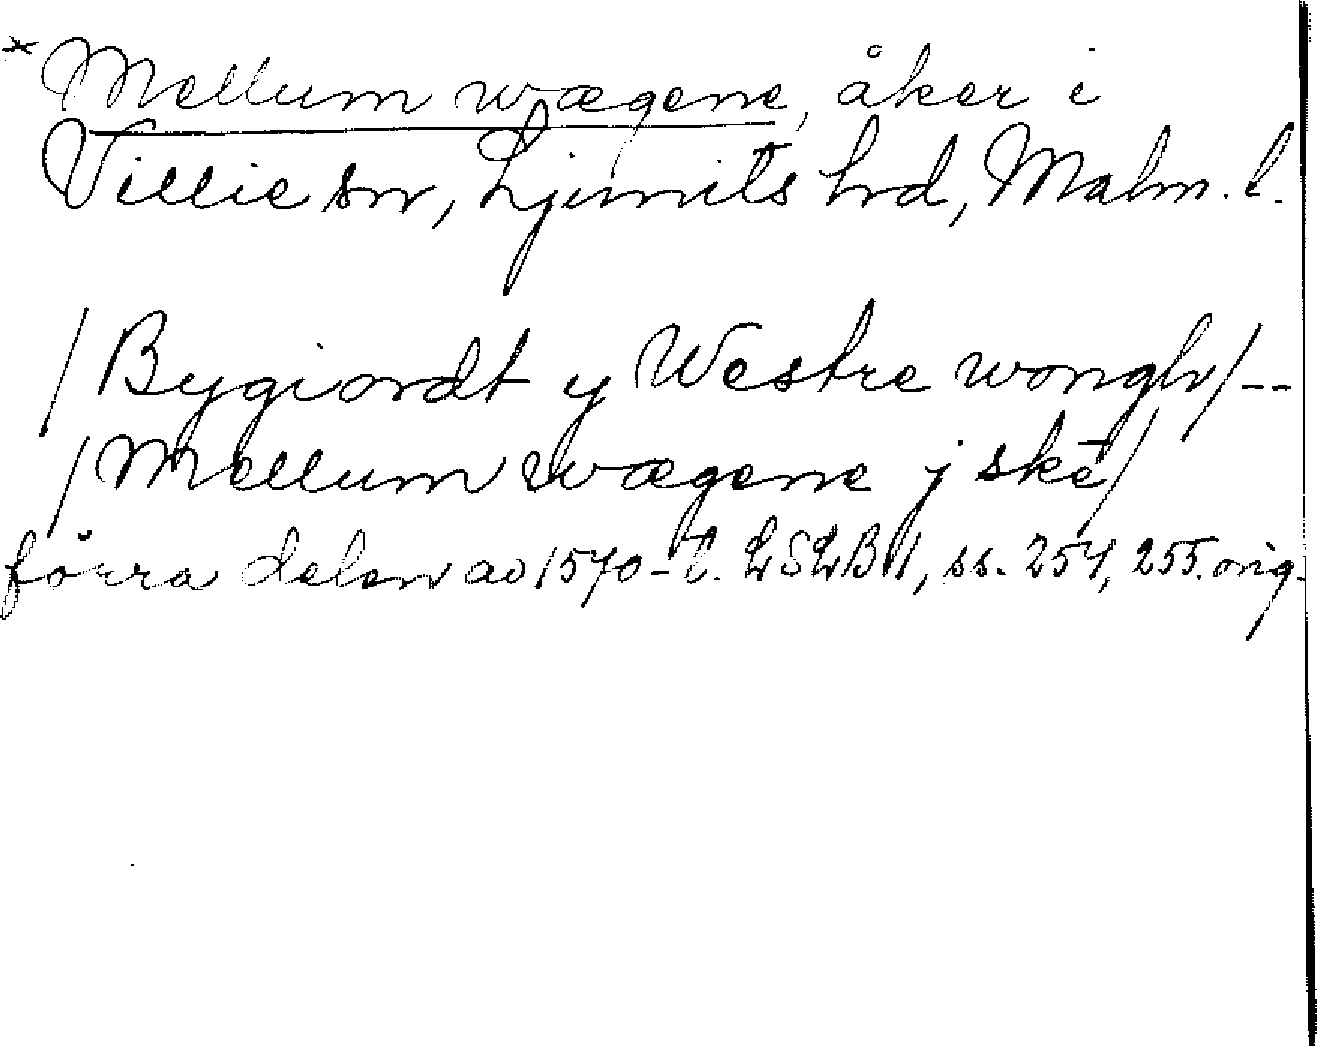 *Mellum wægene, åker i
Villie sn, Ljunits hd, Malm. l.
/Bygiordt y Westre wongh/--
/Mellum wægene j skē/
förra delen av 1570-t. LSLB 1, ss. 254, 255. orig.